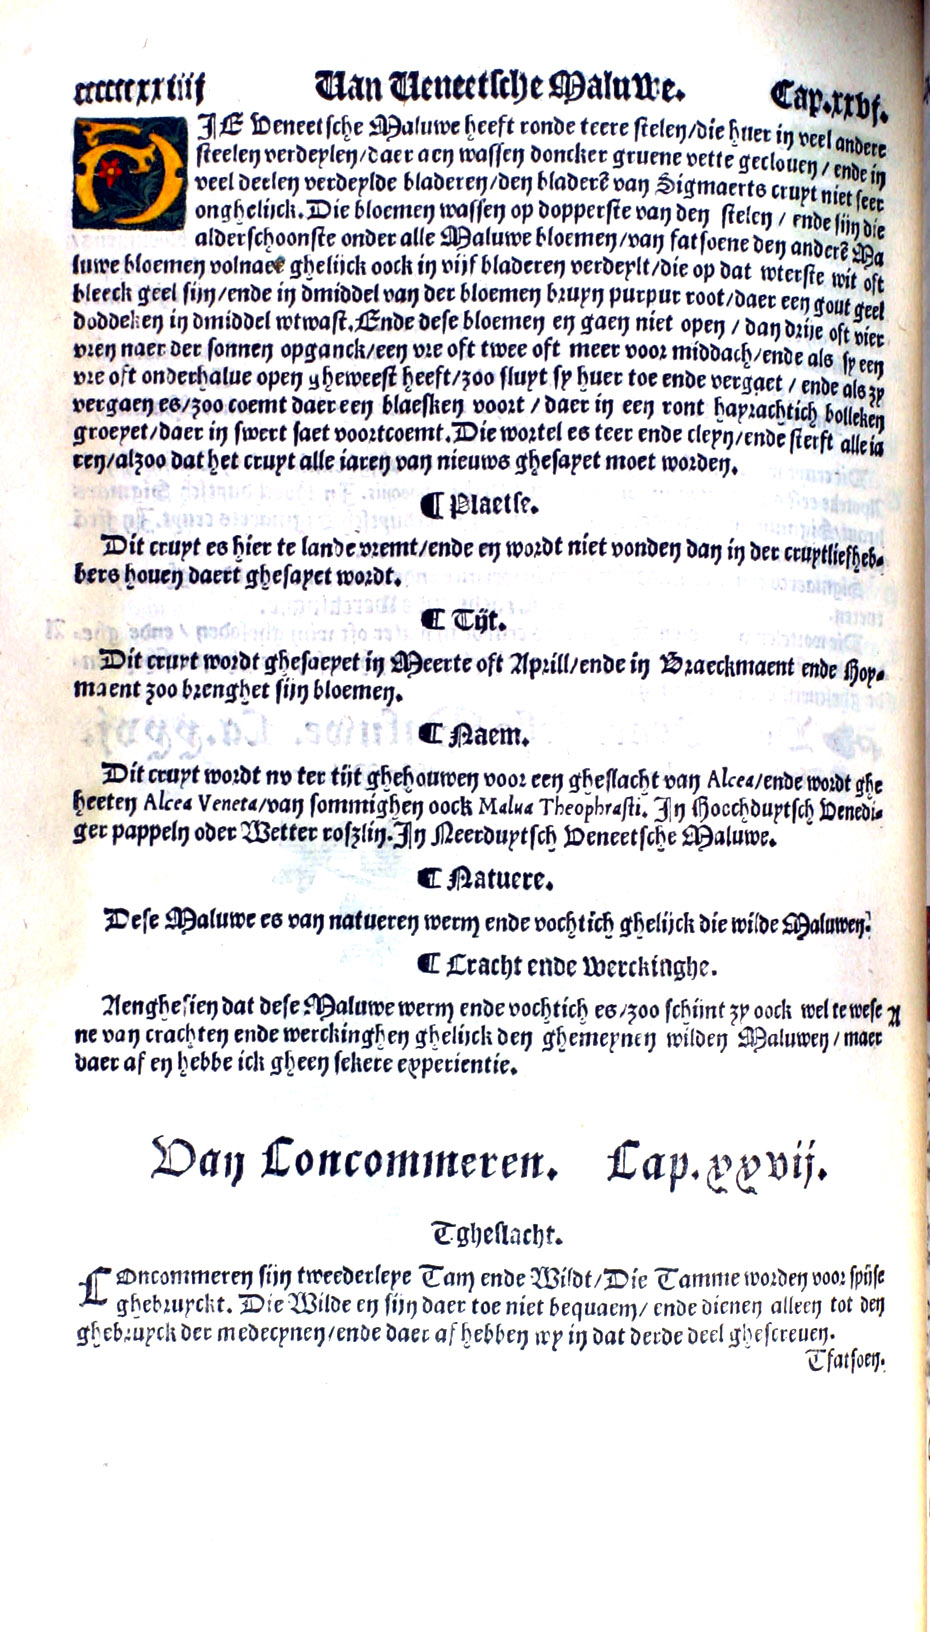 ccccccxxiiij Van Veneetsche Maluwe. Cap.xxvj.
DIE Veneetsche Maluwe heeft ronde teere stelen/die huer in veel andere
steelen verdeylen/daer aen wassen doncker gruene vette gecloven/ ende in
veel deelen verdeylde bladeren/den bladerē van Sigmaerts cruyt niet seer
onghelijck. Die bloemen wassen op dopperste van den stelen / ende sijn die
alderschoonste onder alle Maluwe bloemen/van fatsoene den anderē Ma
luwe bloemen volnaer ghelijck oock in vijf bladeren verdeylt/die op dat wterste wit oft
bleeck geel sijn/ende in dmiddel van der bloemen bruyn purpur root/daer een gout geel
doddeken in dmiddel wtwast. Ende dese bloemen en gaen niet open / dan drije oft vier
vren naer der sonnen opganck/een vre oft twee oft meer voor middach/ende als sy een
vre oft onderhalue open gheweest heeft/zoo sluyt sy huer toe ende vergaet / ende als zy
vergaen es/zoo coemt daer een blaesken voort / daer in een ront hayrachtich bolleken
groeyet/daer in swert saet voortcoemt. Die wortel es teer ende cleyn/ende sterft alle ia
ren/alzoo dat het cruyt alle iaren van nieuws ghesayet moet worden.
¶ Plaetse.
Dit cruyt es hier te lande vremt/ende en wordt niet vonden dan in der cruytliefheb-
bers houen daert ghesayet wordt.
¶ Tijt.
Dit cruyt wordt ghesaeyet in Meerte oft Aprill/ende in Braeckmaent ende Hoy-
maent zoo brenghet sijn bloemen.
¶ Naem.
Dit cruyt wordt nv ter tijt ghehouwen voor een gheslacht van Alcea/ende wordt ghe
heeten Alcea Veneta/van sommighen oock Malua Theophrasti. In Hoochduytsch Venedi-
ger pappeln oder Wetter roszlin. In Neerduytsch Veneetsche Maluwe.
¶ Natuere.
Dese Maluwe es van natueren werm ende vochtich ghelijck die wilde Maluwen.
¶ Cracht ende Werckinghe.
Aenghesien dat dese Maluwe werm ende vochtich es/zoo schijnt zy oock wel te wese A
ne van crachten ende werckinghen ghelijck den ghemeynen wilden Maluwen / maer
daer af en hebbe ick gheen sekere experientie.
Van Concommeren. Cap.xxvij.
Tgheslacht.
COncommeren sijn tweederleye Tam ende Wildt/Die Tamme worden voor spijse
ghebruyckt. Die Wilde en sijn daer toe niet bequaem/ ende dienen alleen tot den
ghebruyck der medecynen/ende daer af hebben wy in dat derde deel ghescreuen.
Tfatsoen.